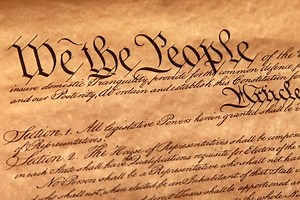 We the People of the
insure domestic Tranquility, provide for the common defence,
and our Posterity, do ordain and establish this Constitution for
Article
Section. 1. All legislative Powers herein granted shall be
of Representatives.
Section. 2. The House of Representatives shall be compo
in each State shall have Qualifications requisite for Electors of the
No Person shall be a Representative who shall not have
who shall not, when elected, be an Inhabitant of that State in
Representatives and direct Taxes shall be apportioned a